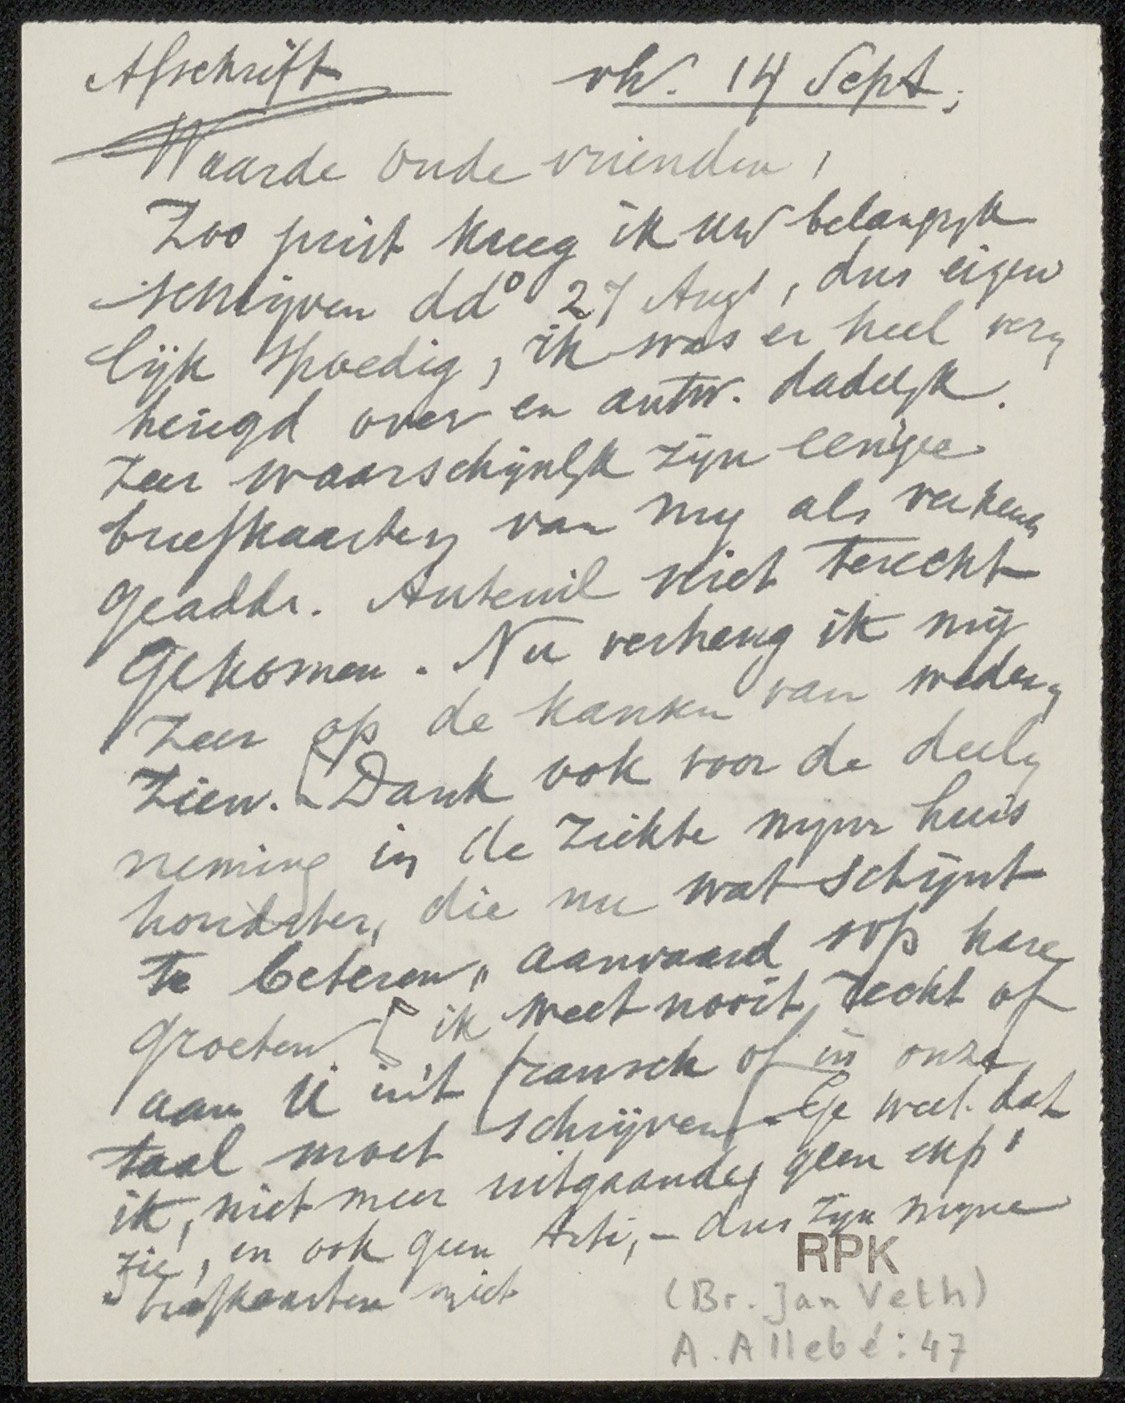 Afschrift vh. 14 Sept,
Waarde oude vrienden,
Zoo juist kreeg ik uw belangrijk
schrijven dd° 27 Augt, dus eigen
lijk spoedig, ik was er heel ver
heugd over en antw. dadelijk.
Zeer waarschijnlijk zijn eenige
briefkaarten van my als verkeerd
geaddr. Auteuil niet terecht
gekomen. Nu verheug ik mij
zeer op de kansen van weder
zien. Dank ook voor de deel
neming in de ziekte mijner huis
houdster, die nu wat schijnt
te beteren, aanvaard svp hare
groeten. ik weet nooit recht of
aan U in't fransch of in onze
taal moet schrijven. Ge weet dat
ik, niet meer uitgaande, geen exps
zie, en ook geen Arti, - dus zijn mijne
briefkaarten niet
RPK
(Br. Jan Veth)
A. Allebé: 47